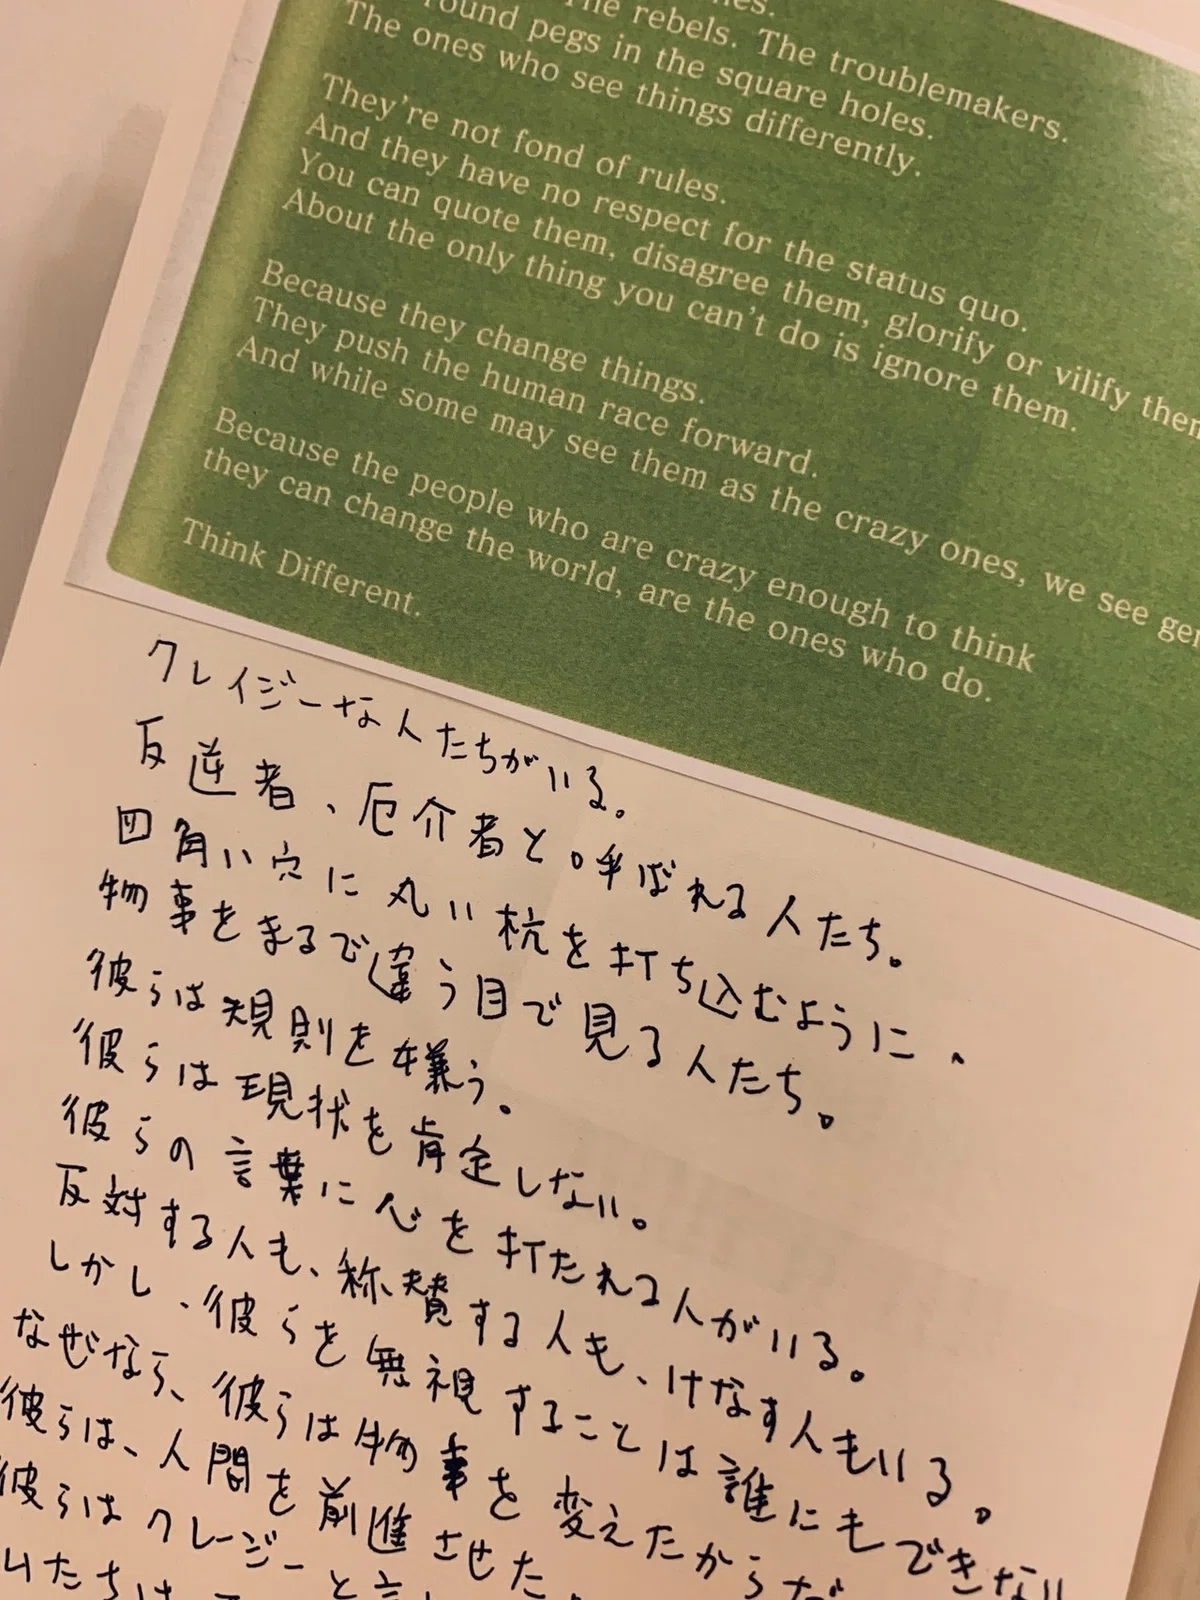 The rebels. The troublemakers.
round pegs in the square holes.
The ones who see things differently.
They're not fond of rules.
And they have no respect for the status quo.
You can quote them, disagree them, glorify or vilify
About the only thing you can't do is ignore them.
Because they change things.
They push the human race forward.
And while some may see them as the crazy ones, we see
Because the people who are crazy enough to think
they can change the world, are the ones who do.
Think Different.
クレイジーな人たちがいる。
反逆者、厄介者と呼ばれる人たち。
四角い穴に丸い杭を打ち込むように、
物事をまるで違う目で見る人たち。
彼らは規則を嫌う。
彼らは現状を肯定しない。
彼らの言葉に心を打たれる人がいる。
反対する人も、称賛する人も、けなす人もいる。
しかし、彼らを無視することは誰にもできない
なぜなら、彼らは物事を変えたからだ
彼らは、人間を前進させた
彼らはクレージーと言